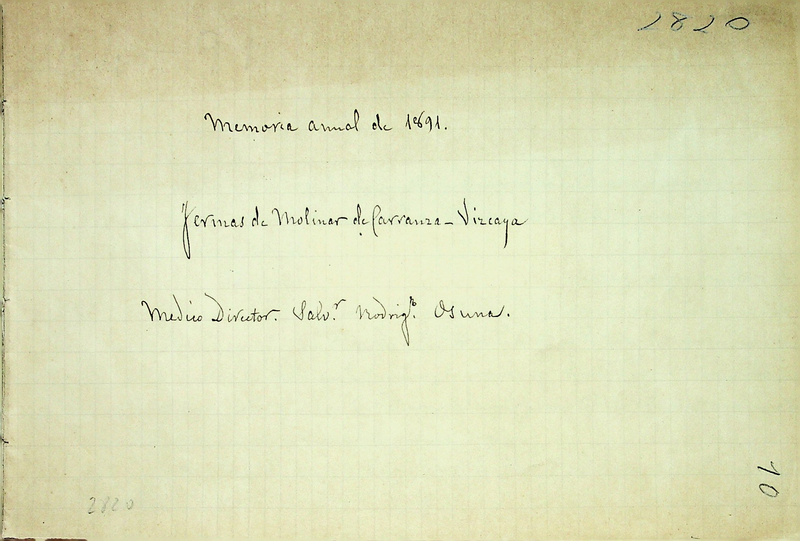 2820
Memoria anual de 1891.
Termas de Molinar de Carranza - Vizcaya
Medico Director. Salv.r Rodrig.z Osuna.
2820
10